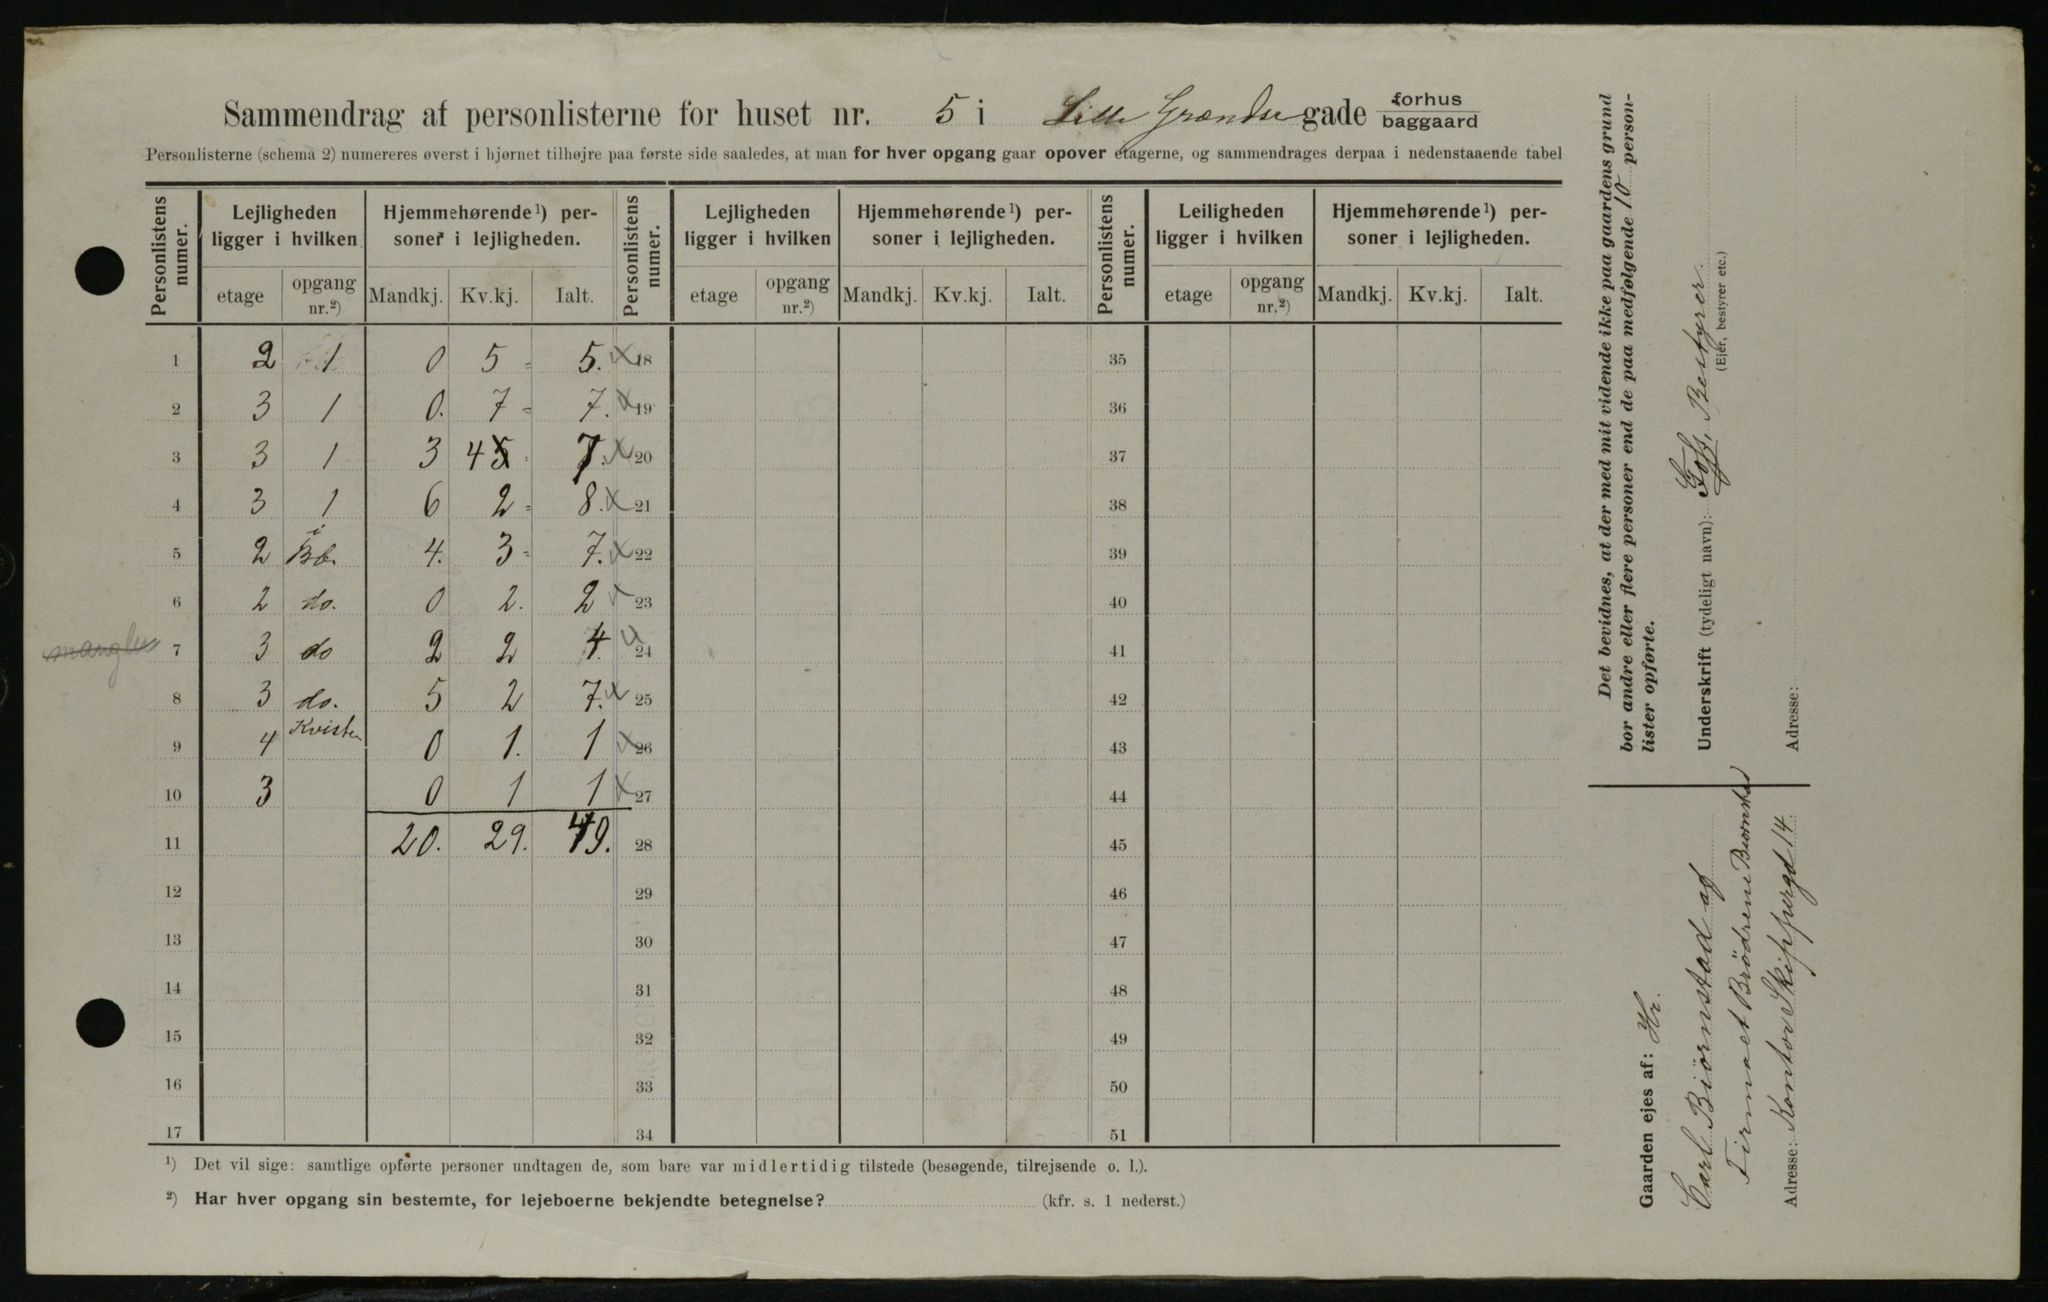 Sammendrag af personlisterne for huset nr. 5 i Lille Grændse gade forhus
baggaard
Personlisterne (schema 2) numereres øverst i hjørnet tilhøjre paa første side saaledes, at man for hver opgang gaar opover etagerne, og sammendrages derpaa i nedenstaaende tabel
Personlistens numer. Lejligheden ligger i hvilken Hjemmehørende¹) personer i lejligheden. Personlistens numer. Lejligheden ligger i hvilken Hjemmehørende¹) personer i lejligheden. Personlistens numer. Leiligheden ligger i hvilken Hjemmehørende¹) personer i lejligheden.
etage opgang nr.²) Mandkj. Kv.kj. Ialt. etage opgang nr.²) Mandkj. Kv.kj. Ialt. etage opgang nr.²) Mandkj. Kv.kj. Ialt.
1 2 1 0 5 = 5. x 18 35
2 3 1 0. 7 = 7. x 19 36
3 3 1 3 4 5 7. x 20 37
4 3 1 6 2 = 8. x 21 38
5 2 i Bb. 4. 3 = 7. x 22 39
6 2 do. 0 2. 2 x 23 40
mangler 7 3 do 2 2 4 24 41
8 3 do. 5 2 7. x 25 42
9 4 Kvisten 0 1. 1 x 26 43
10 3 0 1 1 x 27 44
11 20. 29. 49. 28 45
12 29 46
13 30 47
14 31 48
15 32 49
16 33 50
17 34 51
¹) Det vil sige: samtlige opførte personer undtagen de, som bare var midlertidig tilstede (besøgende, tilrejsende o. l.).
²) Har hver opgang sin bestemte, for lejeboerne bekjendte betegnelse? (kfr. s. 1 nederst.)
Det bevidnes, at der med mit vidende ikke paa gaardens grund
bor andre eller flere personer end de paa medfølgende 10 person-
lister opførte.
Underskrift (tydeligt navn): Goss, Bestyrer.
(Ejer, bestyrer etc.)
Adresse:
Gaarden ejes af: Hr.
Carl Biörnstad af
Firmaet Brödrene Buornstad
Adresse: Kontor Skippergd 14.